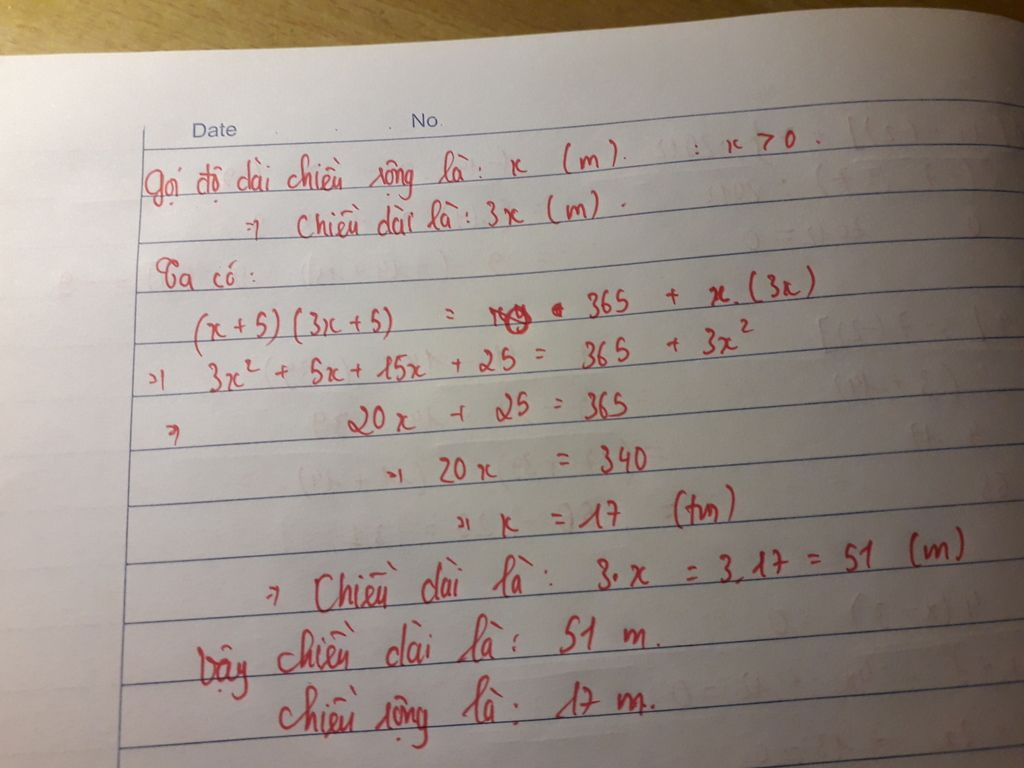 Date No.
Gọi độ dài chiều rộng là: x (m). : x > 0.
=> Chiều dài là: 3x (m).
Ta có:
(x + 5) (3x + 5) = 365 + x. (3x)
=> 3x² + 5x + 15x + 25 = 365 + 3x²
=> 20x + 25 = 365
=> 20x = 340
=> x = 17 (tm)
=> Chiều dài là: 3.x = 3.17 = 51 (m)
Vậy chiều dài là: 51 m.
chiều rộng là: 17 m.